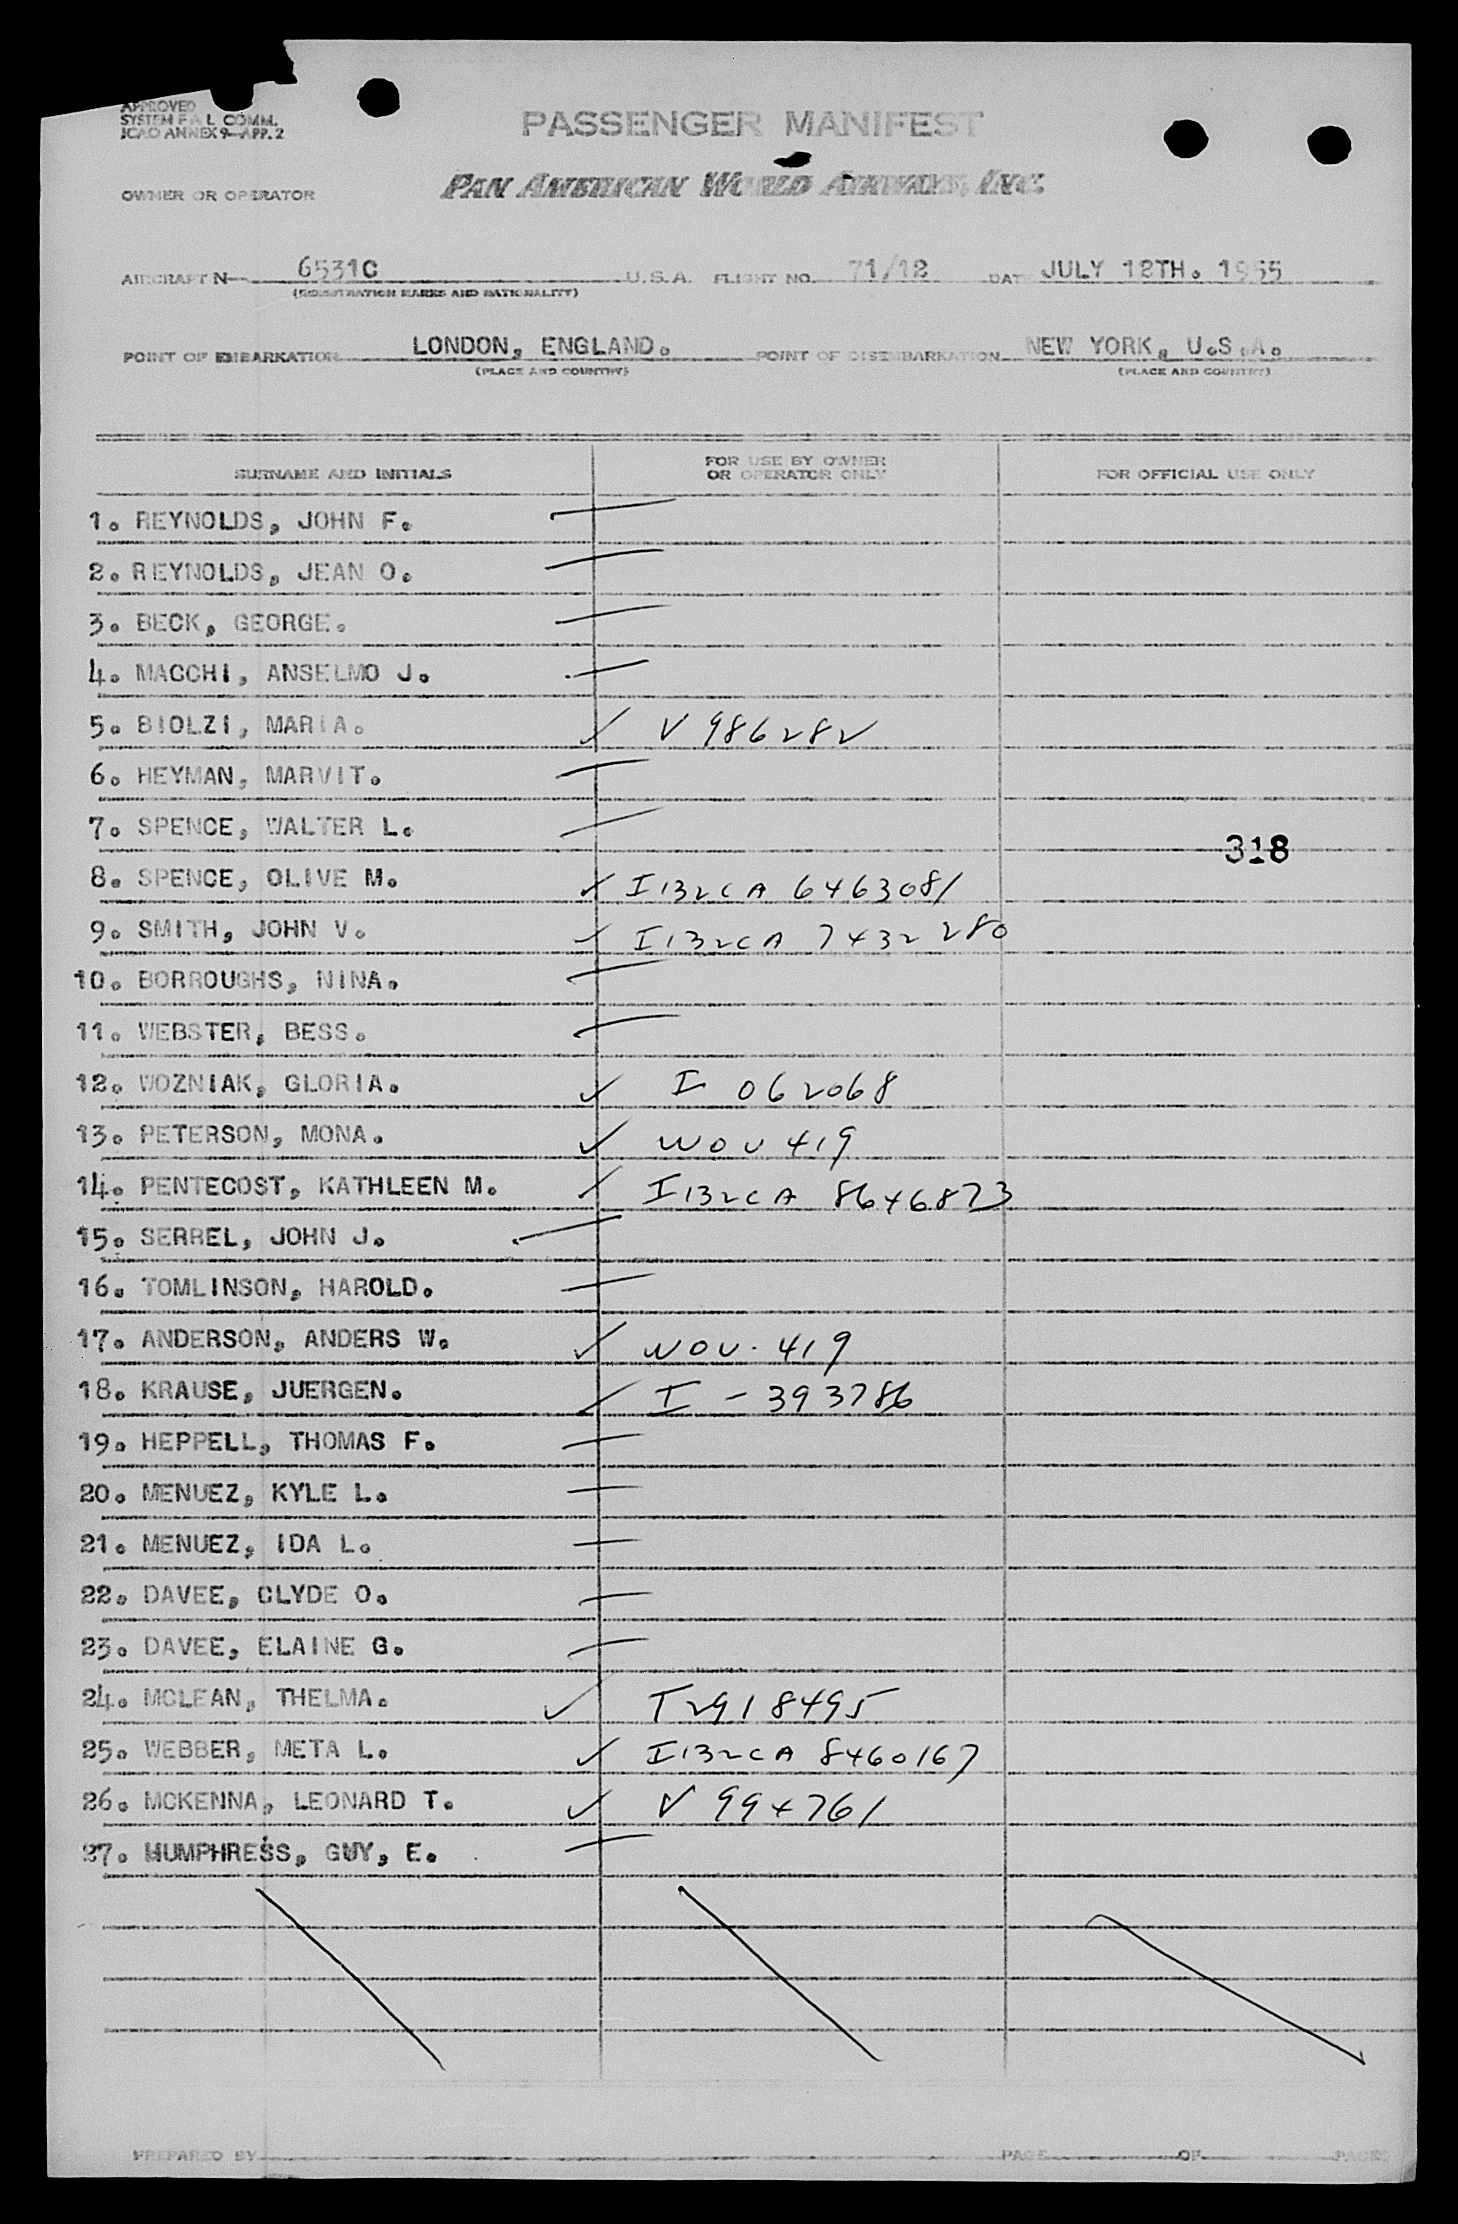 APPROVED
SYSTEM F A L COMM.
ICAO ANNEX 9-APP. 2
PASSENGER MANIFEST
OWNER OR OPERATOR PAN AMERICAN WORLD AIRWAYS, INC.
AIRCRAFT N- 6531C U.S.A. FLIGHT NO. 71/12 DATE JULY 12TH. 1955
(REGISTRATION MARKS AND NATIONALITY)
POINT OF EMBARKATION LONDON, ENGLAND. POINT OF DISEMBARKATION NEW YORK, U.S.A.
(PLACE AND COUNTRY) (PLACE AND COUNTRY)
SURNAME AND INITIALS FOR USE BY OWNER OR OPERATOR ONLY FOR OFFICIAL USE ONLY
1. REYNOLDS, JOHN F.
2. REYNOLDS, JEAN O.
3. BECK, GEORGE.
4. MACCHI, ANSELMO J.
5. BIOLZI, MARIA. ✓ V 986282
6. HEYMAN, MARVIT.
7. SPENCE, WALTER L.
318
8. SPENCE, OLIVE M. ✓ I132CA 6463081
9. SMITH, JOHN V. ✓ I132CA 7432280
10. BORROUGHS, NINA.
11. WEBSTER, BESS.
12. WOZNIAK, GLORIA. ✓ I 062068
13. PETERSON, MONA. ✓ NOV 419
14. PENTECOST, KATHLEEN M. ✓ I132CA 8646873
15. SERREL, JOHN J.
16. TOMLINSON, HAROLD.
17. ANDERSON, ANDERS W. ✓ NOV. 419
18. KRAUSE, JUERGEN. ✓ I - 393786
19. HEPPELL, THOMAS F.
20. MENUEZ, KYLE L.
21. MENUEZ, IDA L.
22. DAVEE, CLYDE O.
23. DAVEE, ELAINE G.
24. MCLEAN, THELMA. ✓ T2918495
25. WEBBER, META L. ✓ I132CA 8460167
26. MCKENNA, LEONARD T. ✓ V 994761
27. HUMPHRESS, GUY, E.
PREPARED BY PAGE OF PAGES